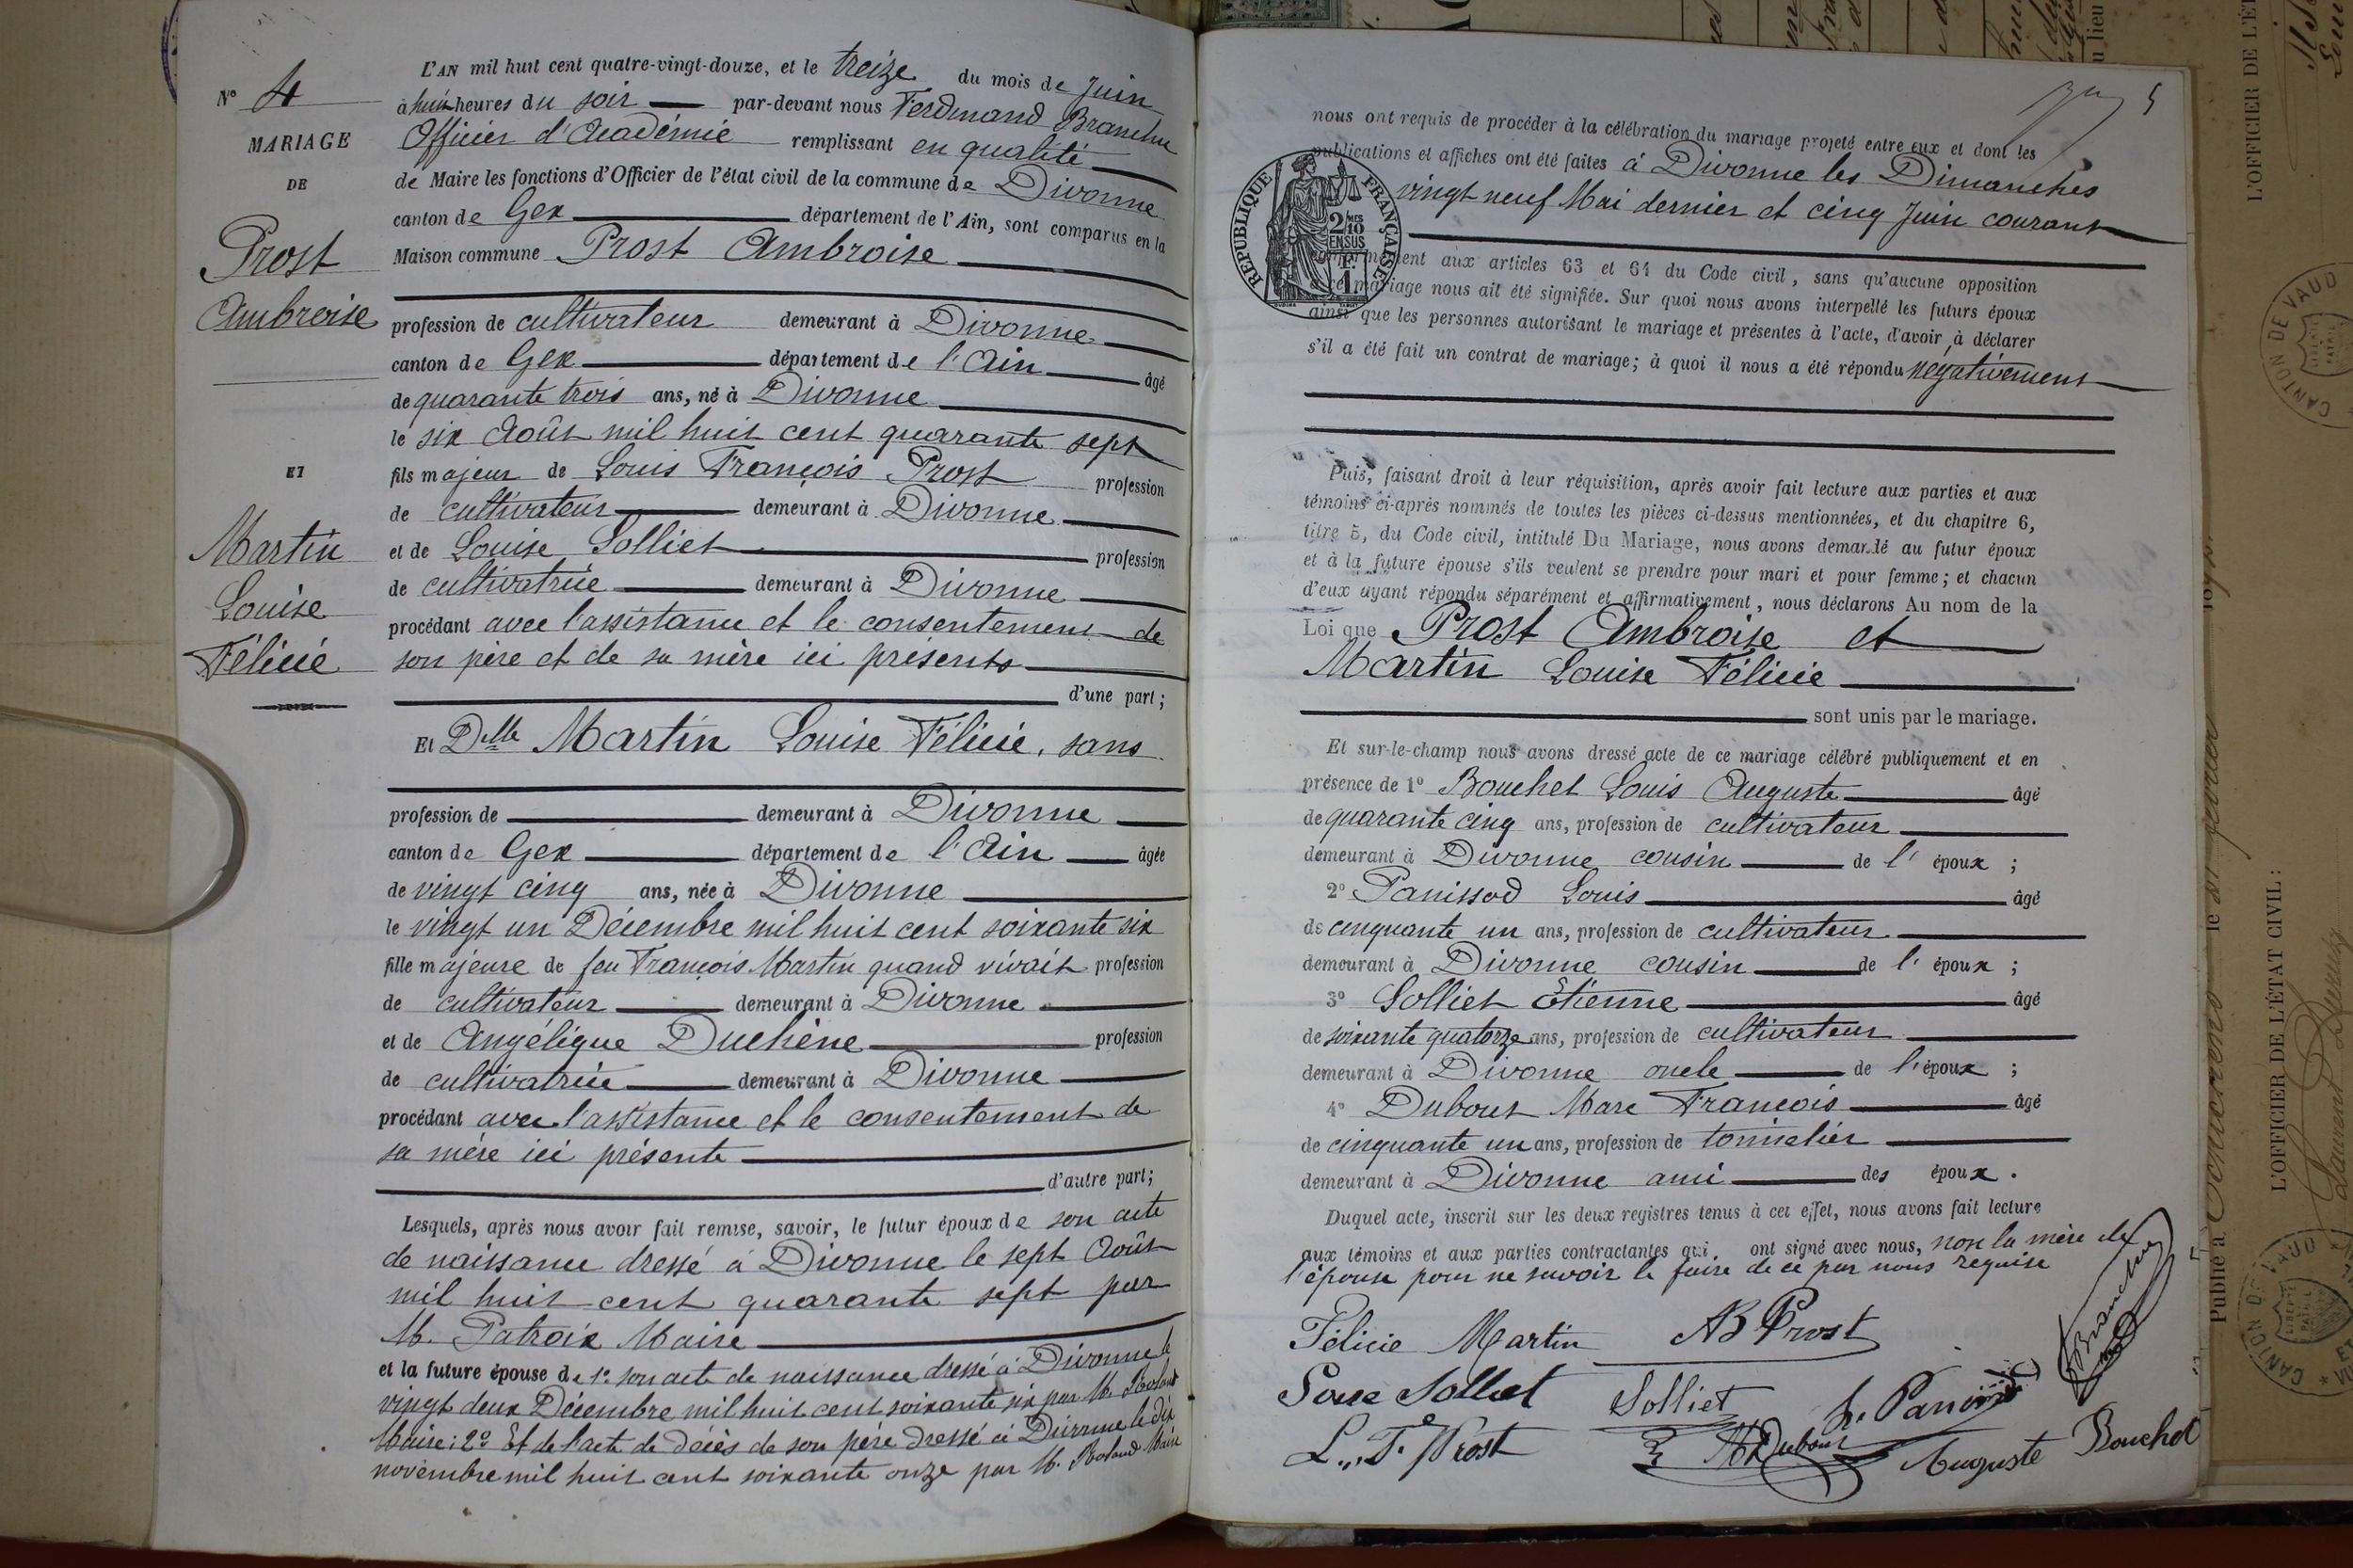 L'AN mil huit cent quatre-vingt-douze, et le treize du mois de Juin
à huit heures du soir par-devant nous Ferdinand Branchu
Officier d'Académie remplissant en qualité
de Maire les fonctions d'Officier de l'état civil de la commune de Divonne
canton de Gex département de l'Ain, sont comparus en la
Maison commune Prost Ambroise
profession de cultivateur demeurant à Divonne
canton de Gex département de l'Ain âgé
de quarante trois ans, né à Divonne
le six Août mil huit cent quarante sept
fils majeur de Louis François Prost profession
de cultivateur demeurant à Divonne
et de Louise Solliet profession
de cultivatrice demeurant à Divonne
procédant avec l'assistance et le consentement de
son père et de sa mère ici présents
d'une part;
Et Dlle Martin Louise Félicie, sans
profession de demeurant à Divonne
canton de Gex département de l'Ain âgée
de vingt cinq ans, née à Divonne
le vingt un Décembre mil huit cent soixante six
fille majeure de feu François Martin quand vivait profession
de cultivateur demeurant à Divonne
et de Angélique Duchêne profession
de cultivatrice demeurant à Divonne
procédant avec l'assistance et le consentement de
sa mère ici présente
d'autre part;
Lesquels, après nous avoir fait remise, savoir, le futur époux de son acte
de naissance dressé à Divonne le sept Août
mil huit cent quarante sept par
M. Patroix Maire
et la future épouse de 1º son acte de naissance dressé à Divonne le
vingt deux Décembre mil huit cent soixante six par M. Roland
Maire; 2º Et de l'acte de décès de son père dressé à Divonne le dix
novembre mil huit cent soixante onze par M. Roland Maire
Nº 4
MARIAGE
DE
Prost
Ambroise
ET
Martin
Louise
Félicie
5
nous ont requis de procéder à la célébration du mariage projeté entre eux et dont les
publications et affiches ont été faites à Divonne les Dimanches
vingt neuf Mai dernier et cinq Juin courant
REPUBLIQUE FRANÇAISE
2/10 MES
EN SUS
1 F.
conformément aux articles 63 et 64 du Code civil, sans qu'aucune opposition
à ce mariage nous ait été signifiée. Sur quoi nous avons interpellé les futurs époux
ainsi que les personnes autorisant le mariage et présentes à l'acte, d'avoir à déclarer
s'il a été fait un contrat de mariage; à quoi il nous a été répondu négativement
Puis, faisant droit à leur réquisition, après avoir fait lecture aux parties et aux
témoins ci-après nommés de toutes les pièces ci-dessus mentionnées, et du chapitre 6,
titre 5, du Code civil, intitulé Du Mariage, nous avons demandé au futur époux
et à la future épouse s'ils veulent se prendre pour mari et pour femme; et chacun
d'eux ayant répondu séparément et affirmativement, nous déclarons Au nom de la
Loi que Prost Ambroise et
Martin Louise Félicie
sont unis par le mariage.
Et sur-le-champ nous avons dressé acte de ce mariage célébré publiquement et en
présence de 1º Bouchet Louis Auguste âgé
de quarante cinq ans, profession de cultivateur
demeurant à Divonne cousin de l'époux;
2º Panissod Louis âgé
de cinquante un ans, profession de cultivateur
demeurant à Divonne cousin de l'époux;
3º Solliet Etienne âgé
de soixante quatorze ans, profession de cultivateur
demeurant à Divonne oncle de l'époux;
4º Dubout Marc François âgé
de cinquante un ans, profession de tonnelier
demeurant à Divonne ami des époux.
Duquel acte, inscrit sur les deux registres tenus à cet effet, nous avons fait lecture
aux témoins et aux parties contractantes qui ont signé avec nous, non la mère de
l'épouse pour ne savoir le faire de ce par nous requise
Félicie Martin AB Prost
Solliet Solliet
L. F. Prost Dubout Auguste Bouchet
Branchu
L'OFFICIER DE L'ÉT
CANTON DE VAUD
L'OFFICIER DE L'ÉTAT CIVIL:
Publié à
CANTON DE VAUD